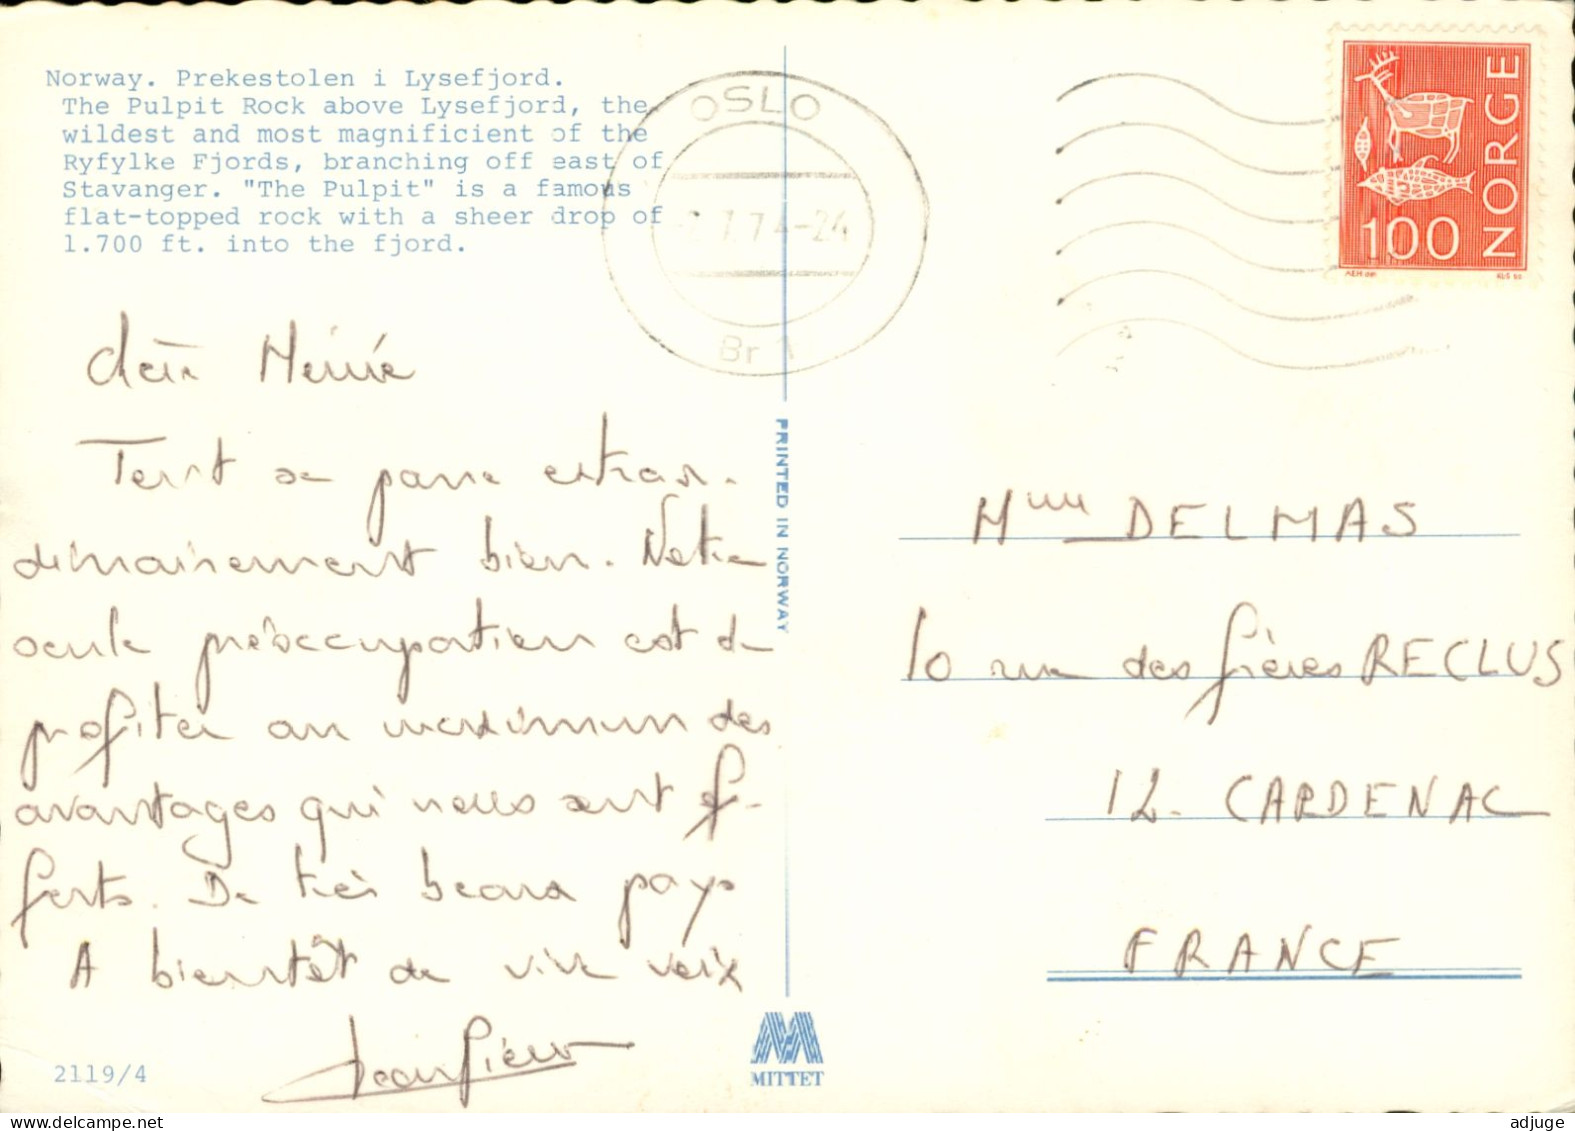 Norway. Prekestolen i Lysefjord.
The Pulpit Rock above Lysefjord, the
wildest and most magnificient of the
Ryfylke Fjords, branching off east of
Stavanger. "The Pulpit" is a famous
flat-topped rock with a sheer drop of
1.700 ft. into the fjord.
OSLO
7.74-24
Br 1
NORGE
100
chère Mémé
Tout se passe extraor-
dinairement bien. Notre
seule préoccupation est de
profiter au maximum des
avantages qui nous sont of-
ferts. De très beaux pays
A bientôt de vive voix
Jean Pierre
PRINTED IN NORWAY
Mme DELMAS
10 rue des frères RECLUS
12. CARDENAC
FRANCE
2119/4
MITTET
adjuge.com